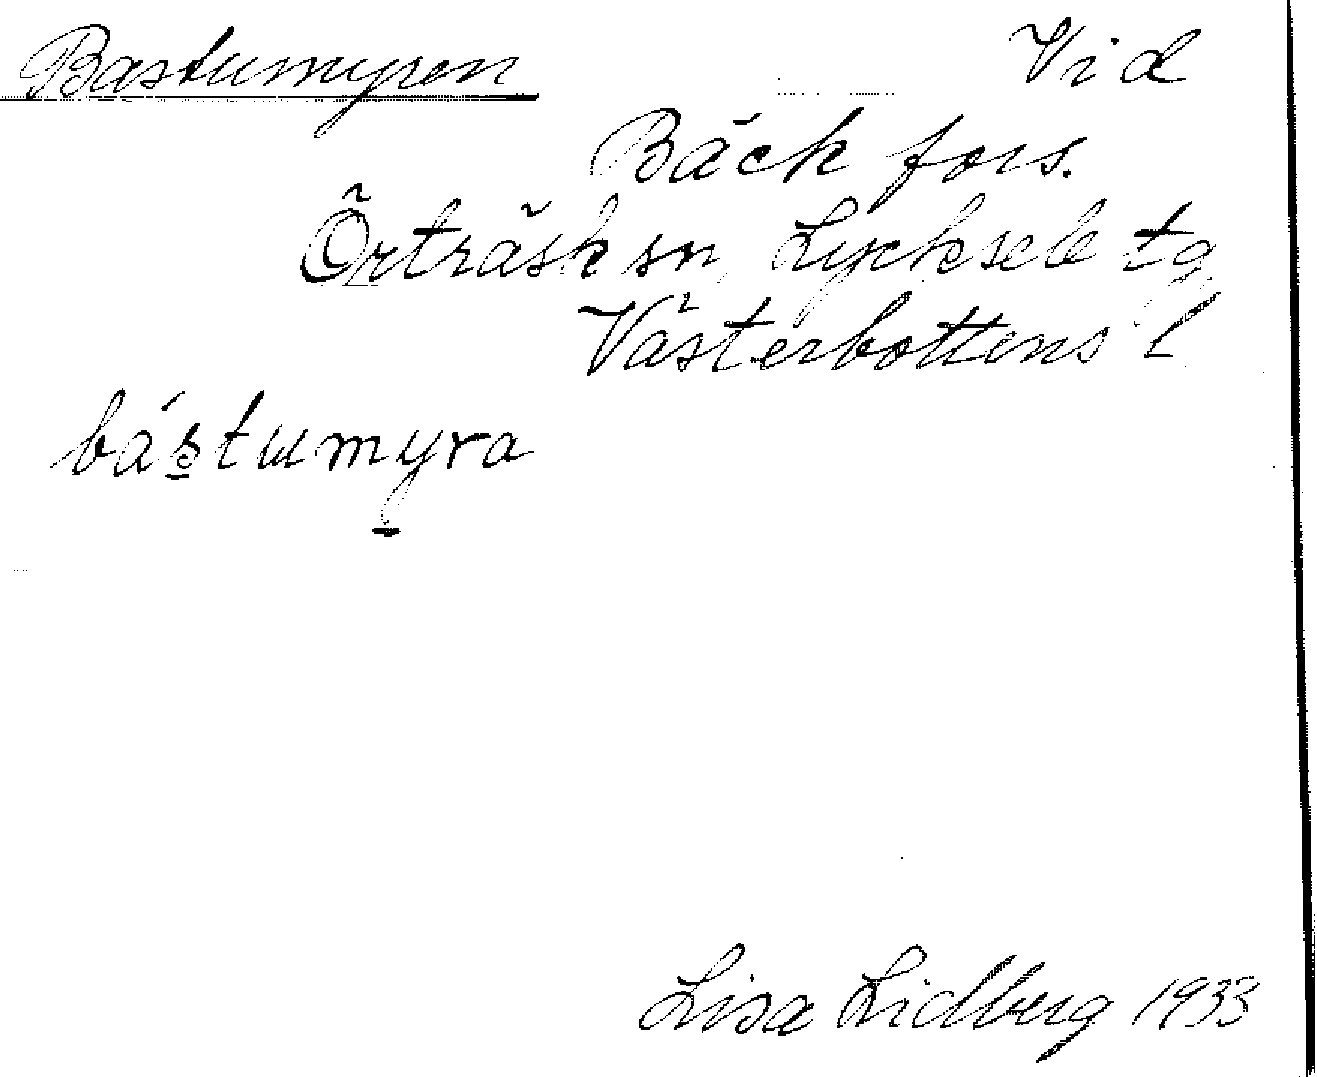 Bastumyren Vid
Bäckfors.
Örträsk sn, Lycksele tg
Västerbottens l
bástumyra
Lisa Lidberg 1933